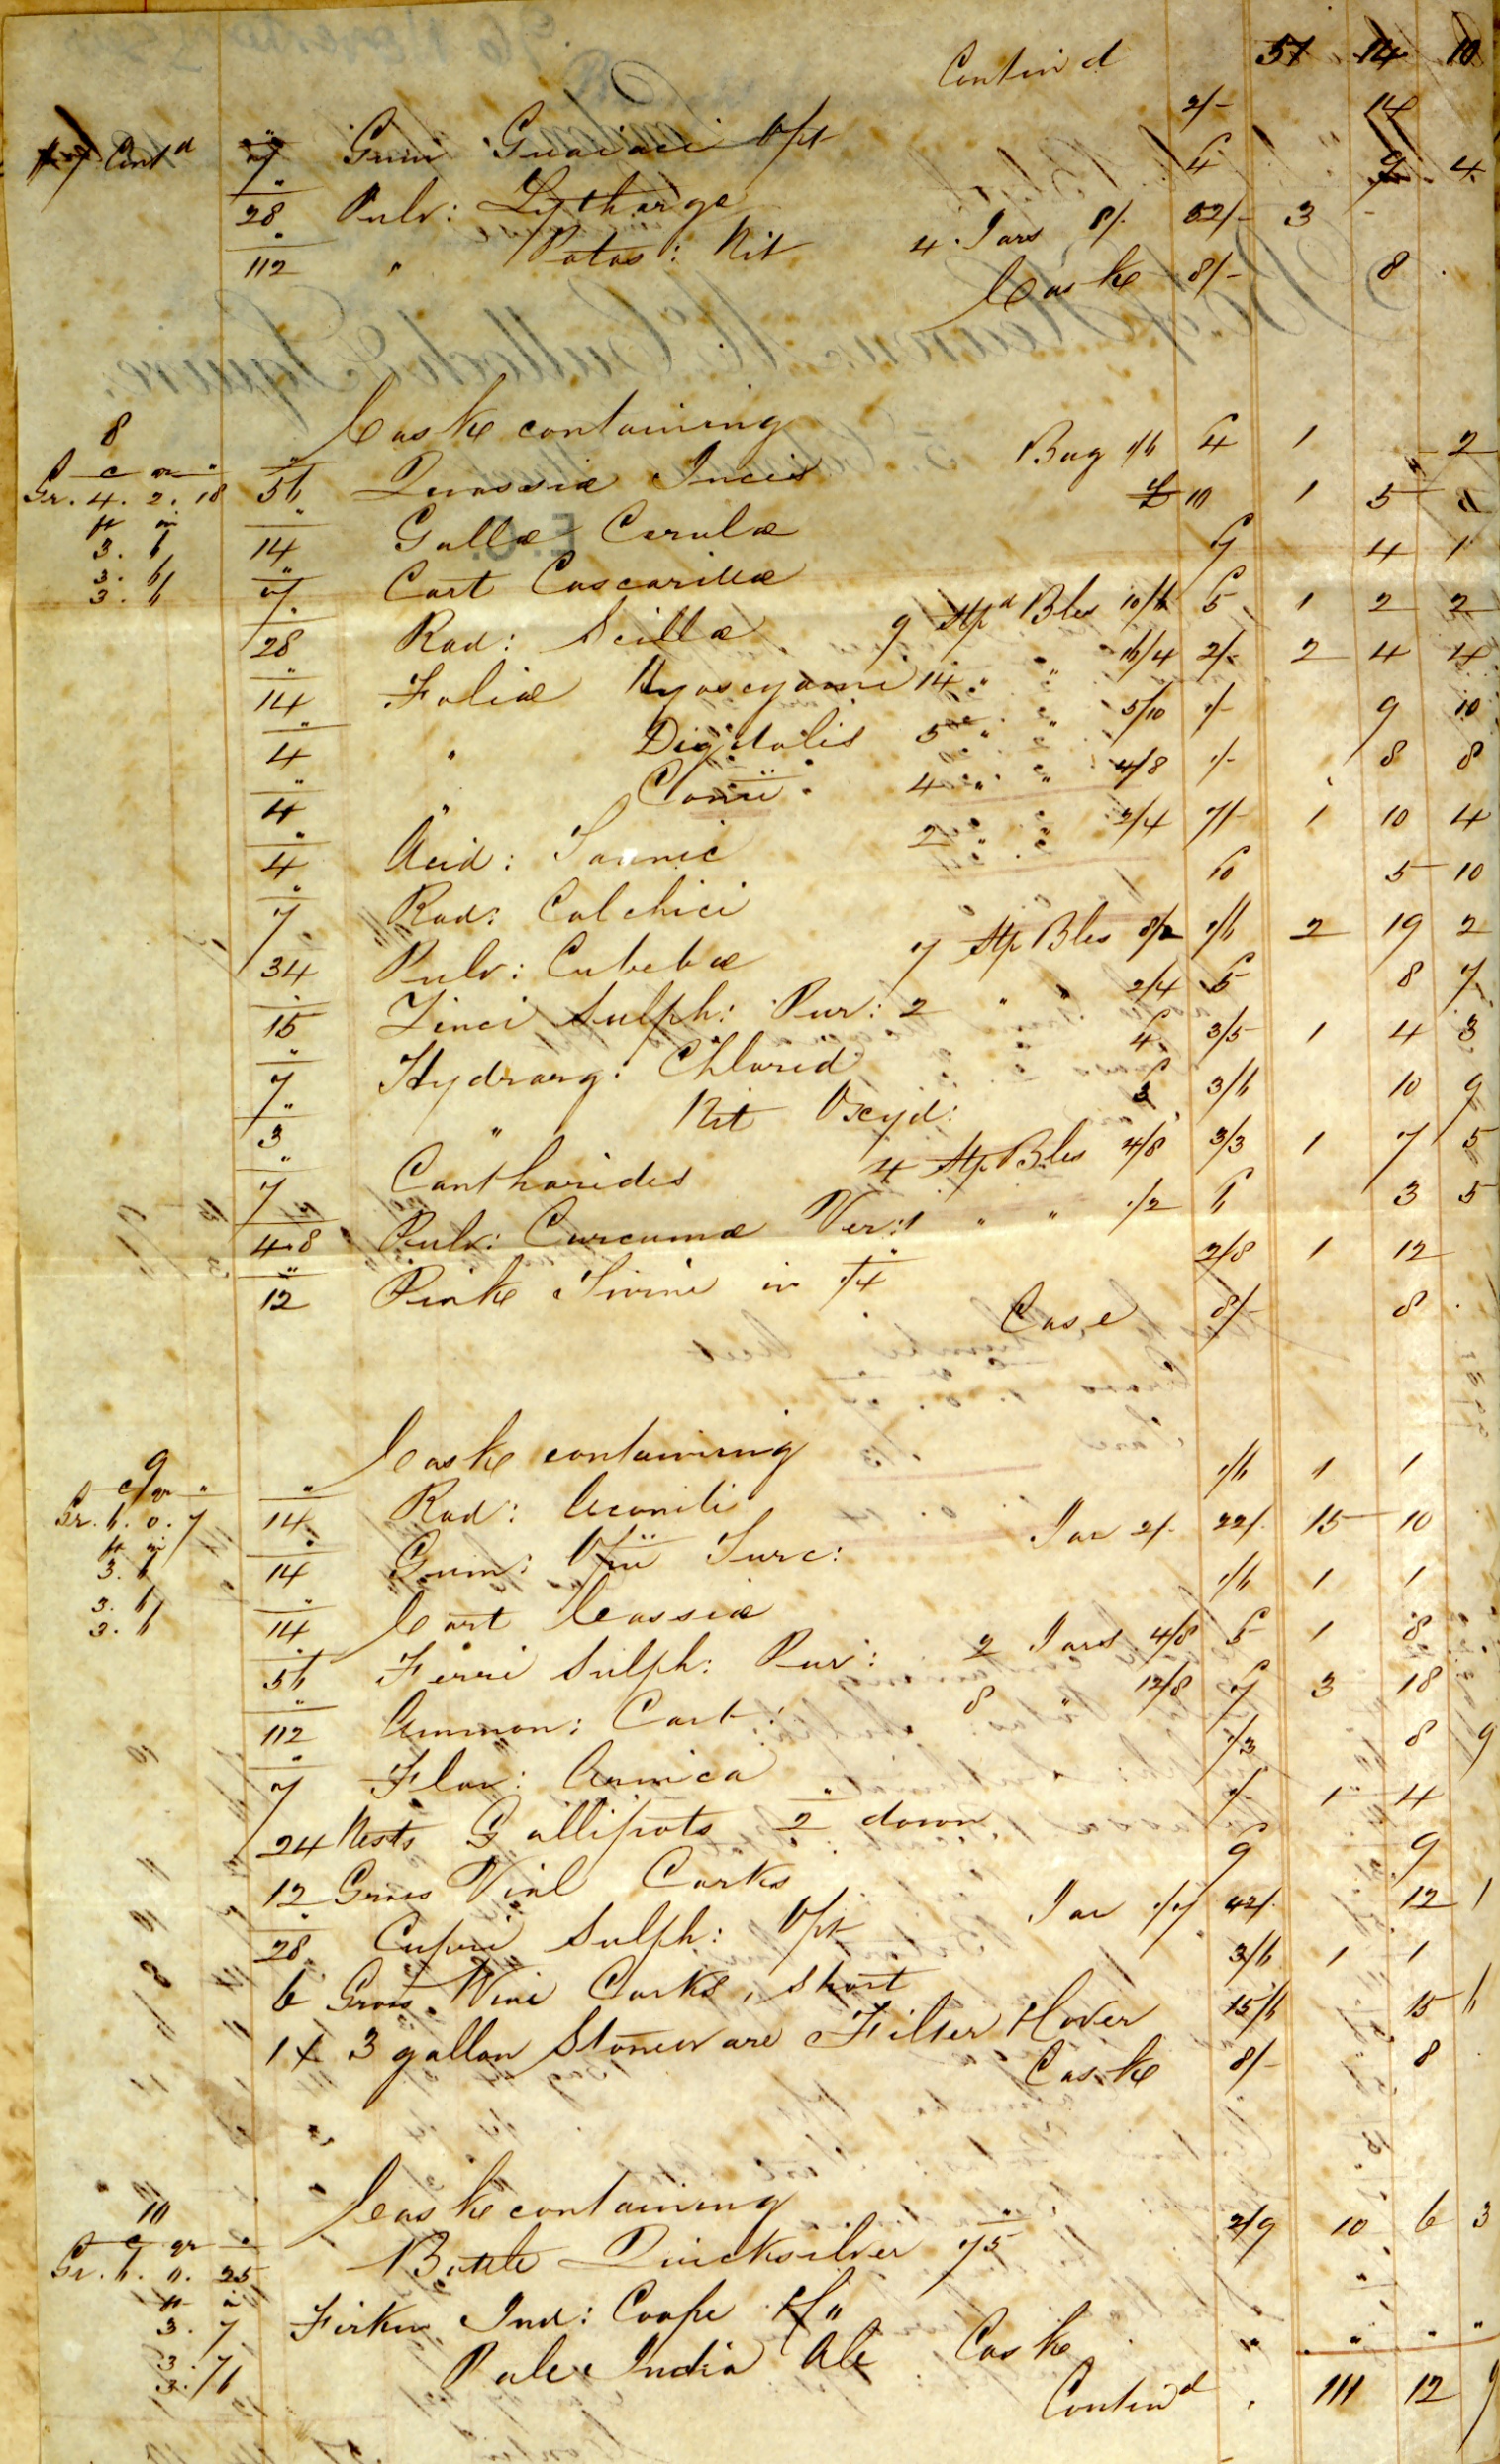 Contin'd 57 14 10
7 Cont^d 7 Gum Guaiaci Opt 2/- 14
28 Pulv: Lytharge 4 9 4
112 " Potas: Nit 4 Jars 8/. 52/- 3 -
Caske 8/- 8 .
8 Caske containing
Gr. 4. 2. 18 56 Quassiæ Incis Bag 1/6 4 1 2
3. 6 14 Gallæ Cerulæ 10 1 5
3. 6 7 Cort Cascarillæ 7 4 1
3. 6 28 Rad: Scillæ 9 Stp^d Bles 10/6 5 1 2 2
14 Foliæ Hyoscyami 14 " " 16/4 2/- 2 4 4
4 " Digitalis 5 " " 5/10 1/- 9 10
4 " Conii 4 " " 4/8 1/- 8 8
4 Acid: Tannic 2 " " 2/4 7/- 1 10 4
7 Rad: Colchici 10 5 10
34 Pulv: Cubebæ 7 Stp Bles 8/2 1/6 2 19 2
15 Zinci Sulph: Pur: 2 " " 2/4 5 8 7
7 Hydrarg: Chlorid 4 3/5 1 4 3
3 " Nit Oxyd: 3 3/6 10 9
7 Cantharides 4 Stp Bles 4/8 3/3 1 7 5
4.8 Pulv: Curcumæ Ver: 1 " " 1/2 6 3 5
12 Pink Twine in 1/4 2/8 1 12
Case 8/- 8 .
9 Caske containing
Gr. 6. 0. 7 14 Rad: Aconiti 1/6 1 1
3. 6 14 Gum: Opii Turc: Jar 2/- 22/. 15 10
3. 6 14 Cort Cassiæ 1/6 1 1
3. 6 56 Ferri Sulph: Pur: 2 Jars 4/8 5 1 8
112 Ammon: Carb: 8 " 12/8 7 3 18
7 Flor: Arnica 1/3 8 9
24 Nests Gallipots 2 down 1/- 1 4
12 Gross Vial Corks 9 9
28 Cupri Sulph: Opt Jar 1/7 42/. 12 1
6 Gross Wine Corks, short 3/6 1 1
1 x 3 gallon Stoneware Filter Hover 15/6 15 6
Caske 8/- 8 .
10 Caske containing
Gr. 6. 0. 25 Bottle Quicksilver 75 2/9 10 6 3
3. 7 Firkin Ind: Coope
3. 7 Pale India Ale Caske " " " "
3. 6 Contin^d 111 12 9